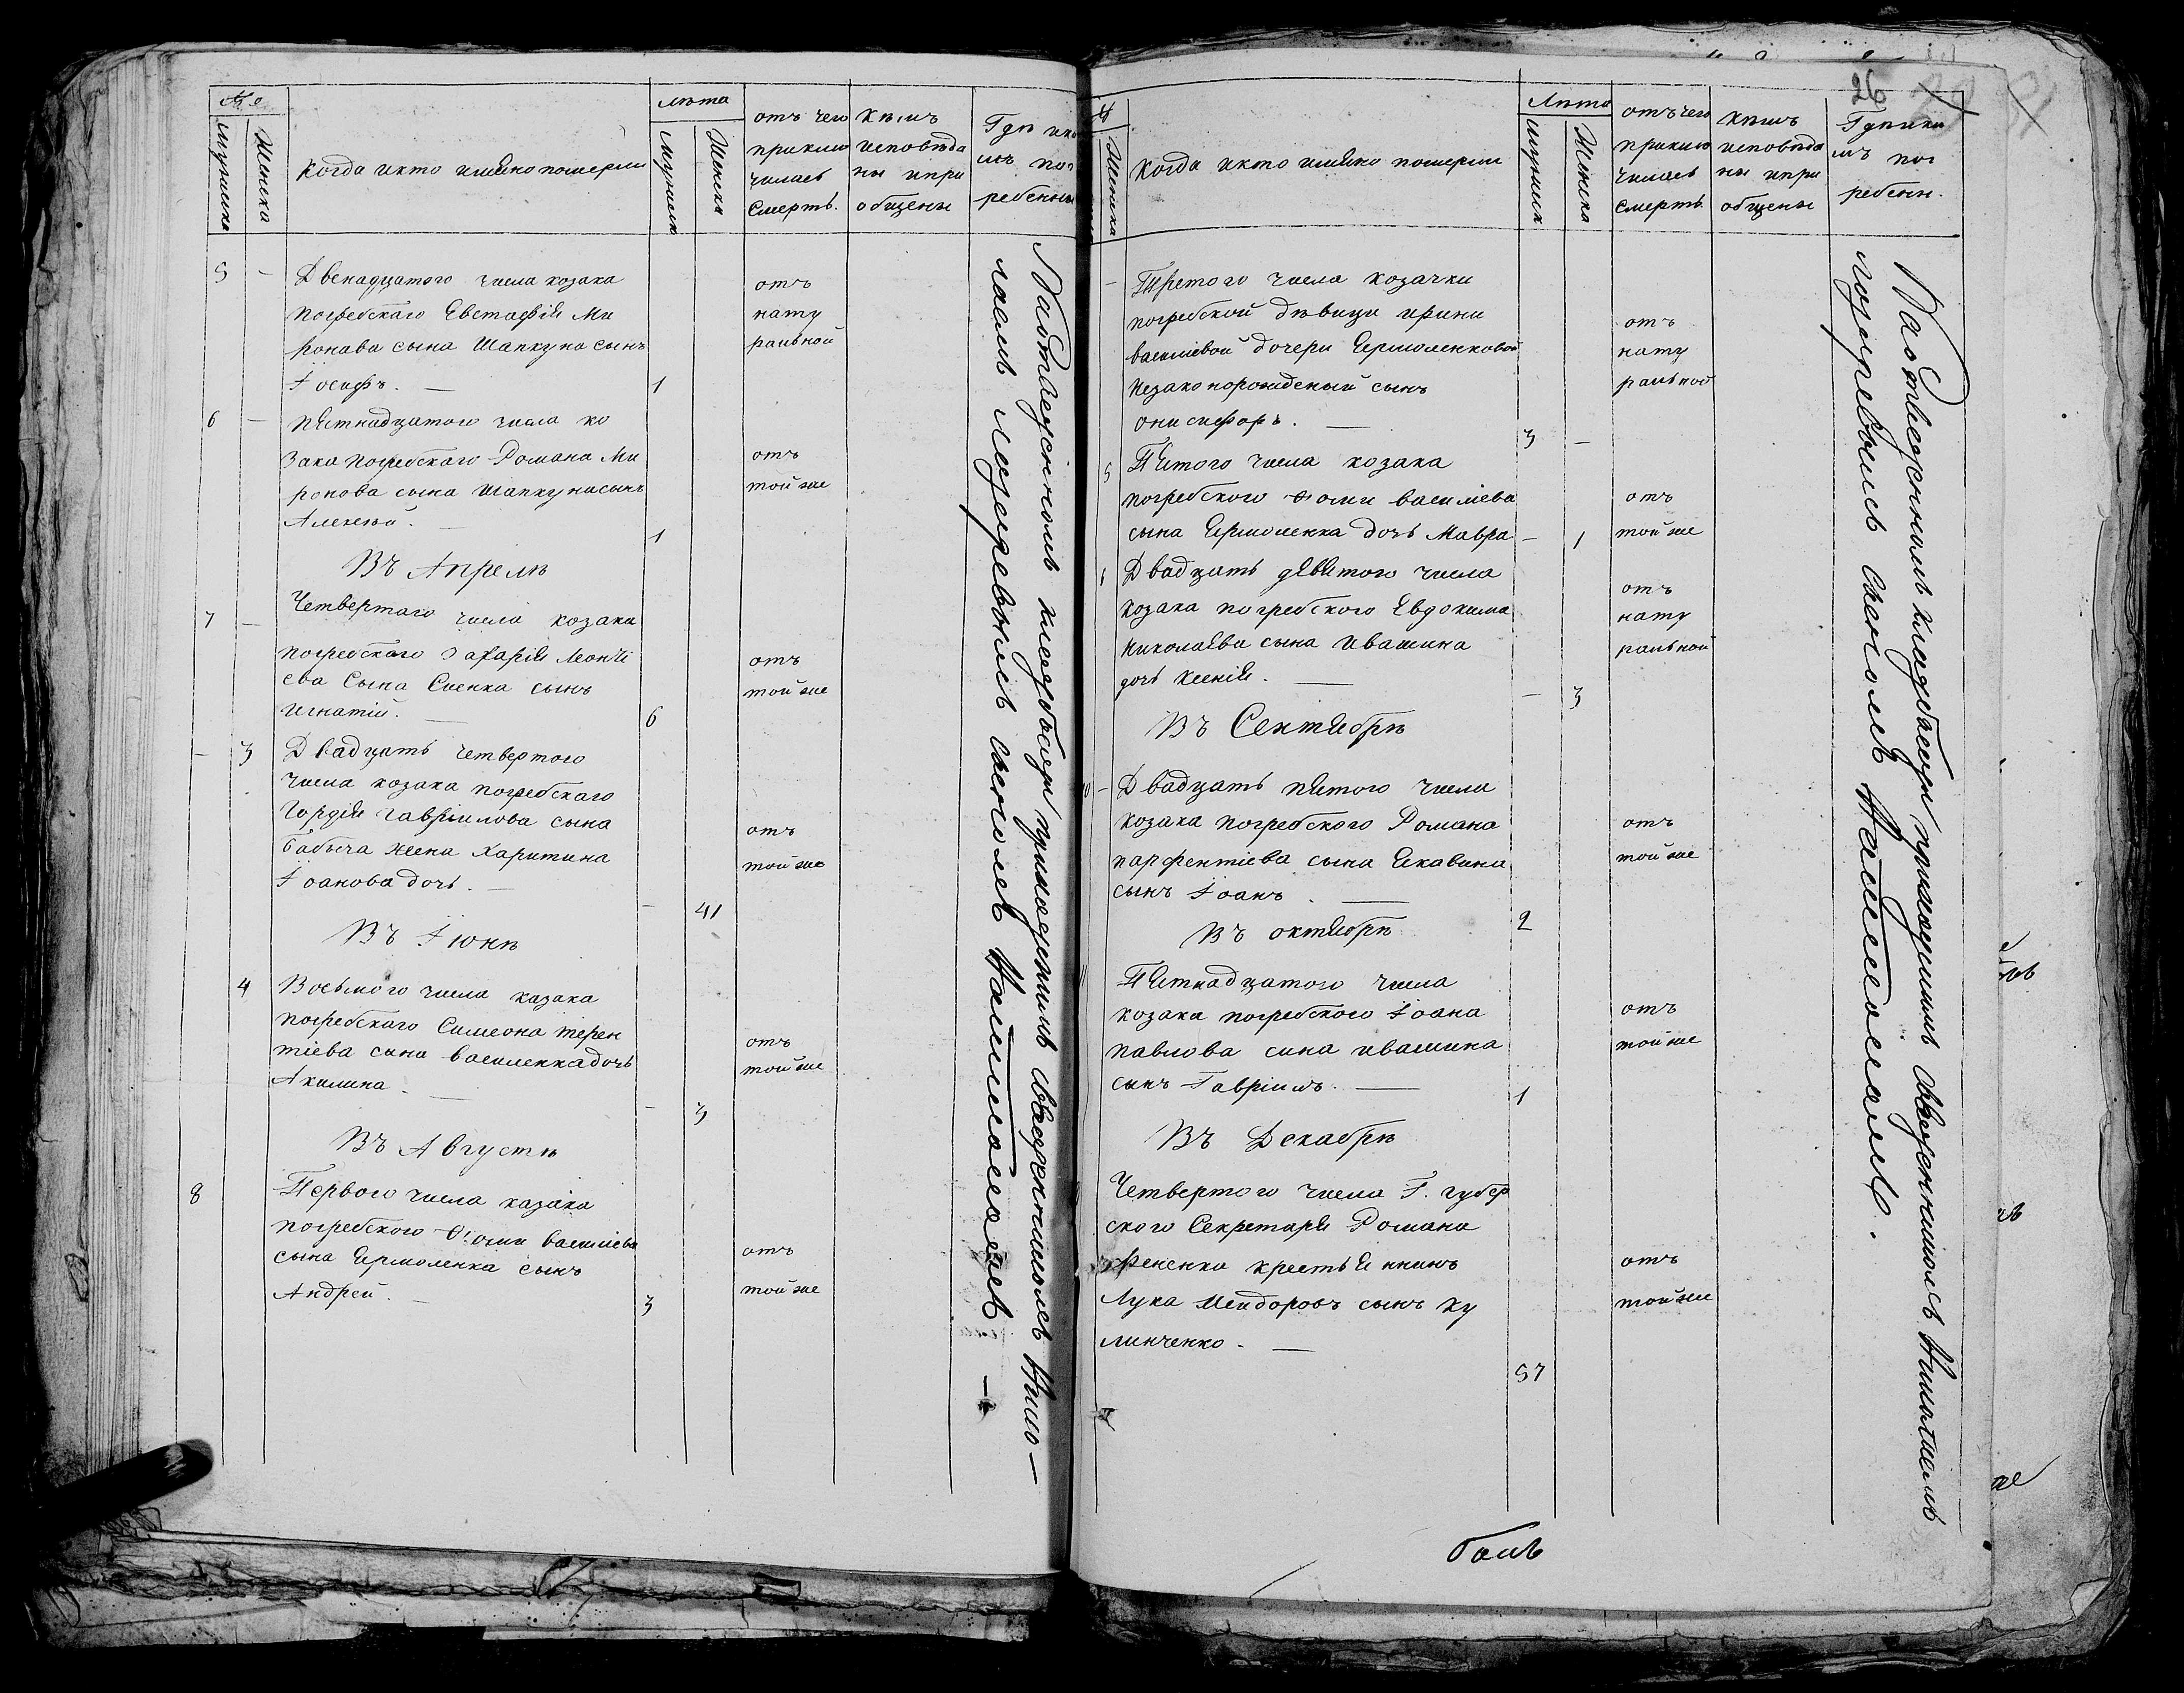 №
Мужеска
Женска
Когда и кто имяно померли
лѣта
Мужеск
Женска
отъ чего
приклю
чилась
смерть.
Кѣмъ
исповѣда
ны и прі
общены
Гдѣ и кѣ
мъ пог
ребенны
5 —
Двенадцатого числа козака
погребскаго Евстафія Ми
ронава сына Шапкуна сынъ
Іосифъ. —
1
отъ
нату
ральной
6 —
пятнадцатого числа ко
зака погребскаго Романа Ми
ронова сына Шапкуна сынъ
Алексѣй. —
1
отъ
той же
Въ Апрелѣ
7 —
Четвертаго числа козака
погребскаго Захарія Леонті
ева Сына Сненка сынъ
Игнатій. —
6
отъ
той же
— 3
Двадцать четвертого
числа козака погребскаго
Гордія Гавріилова сына
Бабыча жена Харитина
Іоанова дочь. —
— 41
отъ
той же
Въ Іюнѣ
4
Восьмого числа казака
погребскаго Симеона терен
тіева сина василенка дочь
Акилина. —
— 3
отъ
той же
Въ Августѣ
8
Первого числа казака
погребского Фоми василіева
сына Ермоленка сынъ
Андрей. —
3
отъ
той же
На отведенномъ кладбищи приходскимъ священникомъ Нико—
лаемъ Лазаревымъ
26
Женска
Когда и кто имяно померли
Лѣта
Мужеск
Женска
отъ чего
приклю
чилась
смерть.
Кѣмъ
исповѣда
ны и прі
общены
Гдѣ и кѣ
мъ пог
ребенн.
—
Третого числа козачки
погребской дѣвици ирини
василіевой дочери Ермоленковой
незаконорожденый сынъ
онисифоръ. —
3 —
отъ
нату
ральной
5
Пятого числа козака
погребского Фоми василіева
сына Ермоленка дочь Мавра
— 1
отъ
той же
6
Двадцать девятого числа
козака погребского Евдокима
николаева сына ивашина
дочь Ксенія. —
— 3
отъ
нату
ральной
Въ Сентябрѣ
—
Двадцать пятого числа
козака погребского Романа
парфентіева сына Скавина
сынъ Іоанъ. —
2
отъ
той же
Въ октябрѣ
Пятнадцатого числа
козака погребского Іоана
павлова сина ивашина
сынъ Гавріилъ. —
1
отъ
той же
Въ Декабрѣ
Четвертого числа Г. губер
ского Секретаря Романа
крестьянинъ
Лука сынъ Ку
линченко. —
57
отъ
той же
На отведенномъ кладбищи приходскимъ священникомъ